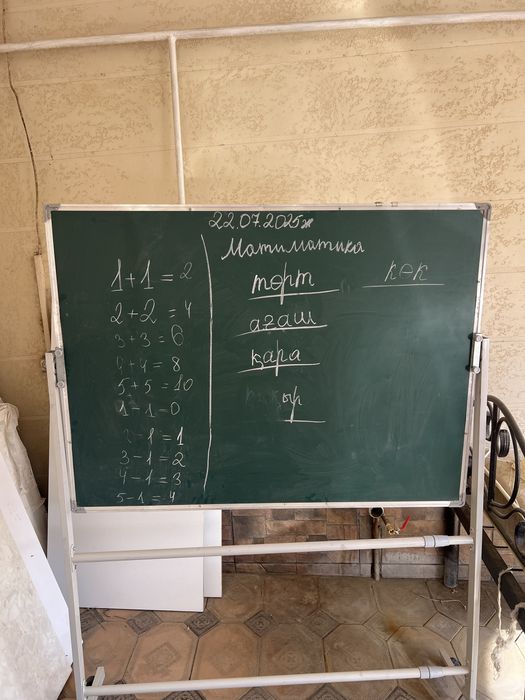 22.07.2025ж
Матиматика
1+1=2
2+2=4
3+3=6
4+4=8
5+5=10
1-1=0
2-1=1
3-1=2
4-1=3
5-1=4
төрт көк
ағаш
қара
ыр